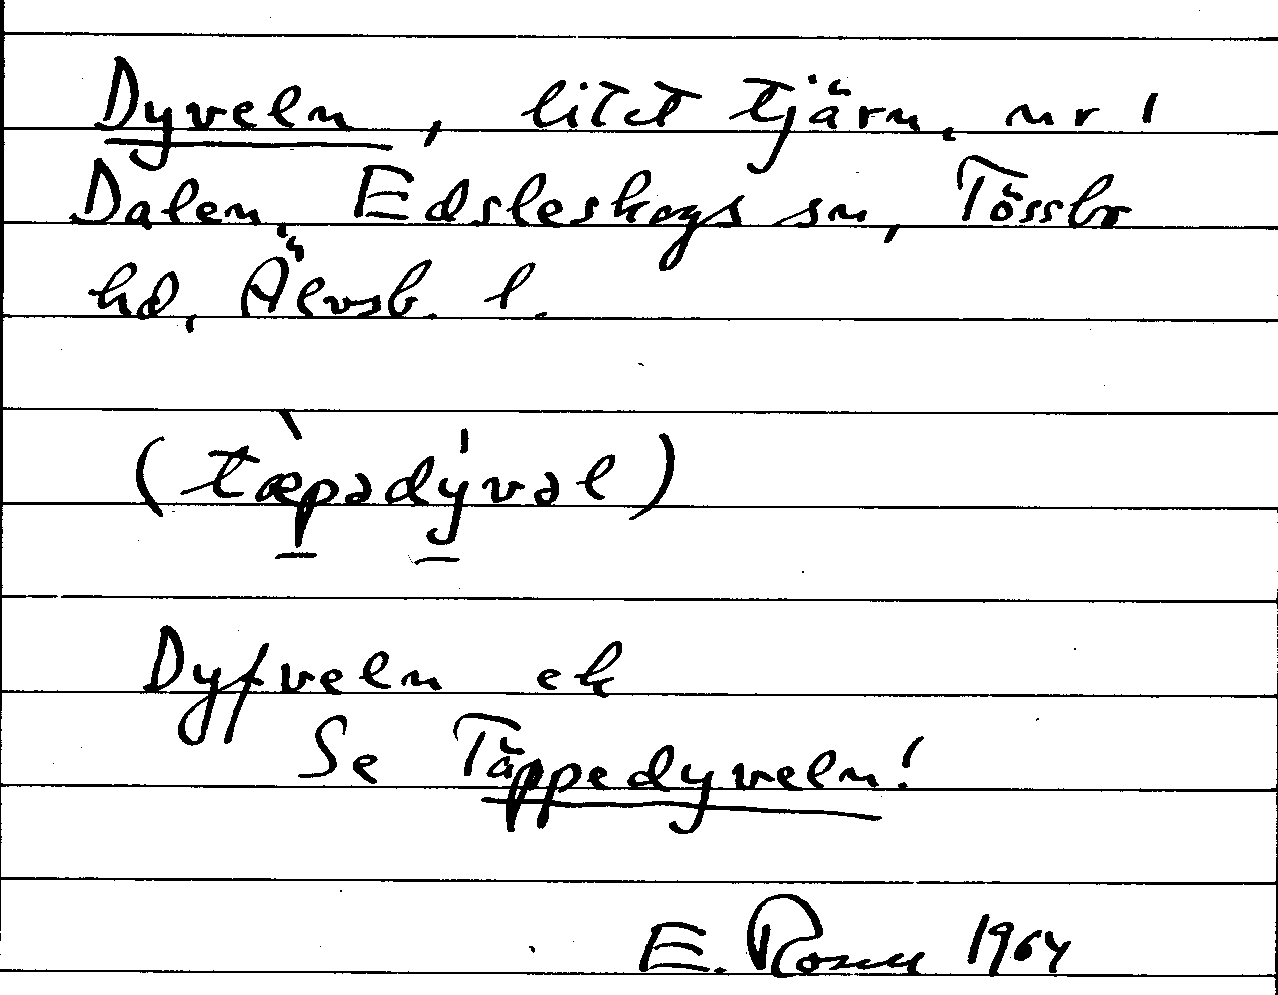 Dyveln, litet tjärn, nr 1
Dalen, Edsleskogs sn, Tössbo
hd, Älvsb. l.
(tæ̀pədývəl)
Dyfveln ek
Se Täppedyveln!
E. Rosell 1964